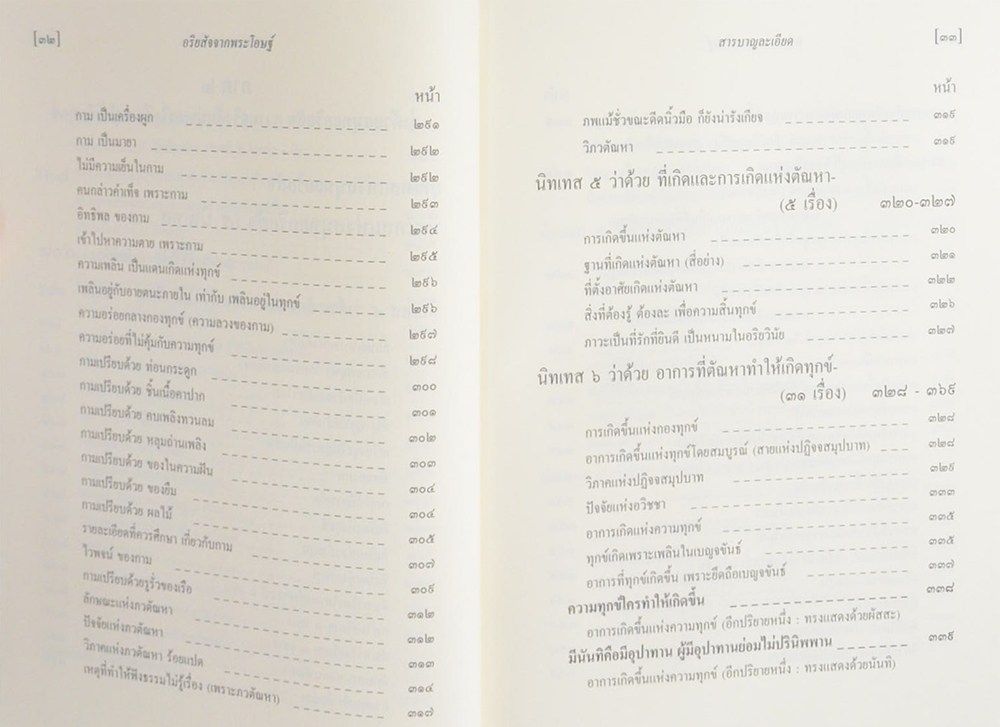 [๓๒] อริยสัจจากพระโอษฐ์
หน้า
กาม เป็นเครื่องผูก ๒๙๑
กาม เป็นมายา ๒๙๒
ไม่มีความเย็นในกาม ๒๙๒
คนกล่าวคำเท็จ เพราะกาม ๒๙๓
อิทธิพล ของกาม ๒๙๔
เข้าไปหาความตาย เพราะกาม ๒๙๕
ความเพลิน เป็นแดนเกิดแห่งทุกข์ ๒๙๖
เพลินอยู่กับอายตนะภายใน เท่ากับ เพลินอยู่ในทุกข์ ๒๙๖
ความอร่อยกลางกองทุกข์ (ความลวงของกาม) ๒๙๗
ความอร่อยที่ไม่คุ้มกับความทุกข์ ๒๙๘
กามเปรียบด้วย ท่อนกระดูก ๓๐๐
กามเปรียบด้วย ชิ้นเนื้อคาปาก ๓๐๑
กามเปรียบด้วย คบเพลิงทวนลม ๓๐๒
กามเปรียบด้วย หลุมถ่านเพลิง ๓๐๓
กามเปรียบด้วย ของในความฝัน ๓๐๔
กามเปรียบด้วย ของยืม ๓๐๔
กามเปรียบด้วย ผลไม้ ๓๐๕
รายละเอียดที่ควรศึกษา เกี่ยวกับกาม ๓๐๗
ไวพจน์ ของกาม ๓๐๙
กามเปรียบด้วยรูรั่วของเรือ ๓๑๒
ลักษณะแห่งภวตัณหา ๓๑๒
ปัจจัยแห่งภวตัณหา ๓๑๓
วิภาคแห่งภวตัณหา ร้อยแปด ๓๑๔
เหตุที่ทำให้ฟังธรรมไม่รู้เรื่อง (เพราะภวตัณหา) ๓๑๗
สารบาญละเอียด [๓๓]
หน้า
ภพแม้ชั่วขณะดีดนิ้วมือ ก็ยังน่ารังเกียจ ๓๑๙
วิภวตัณหา ๓๑๙
นิทเทส ๕ ว่าด้วย ที่เกิดและการเกิดแห่งตัณหา-
(๕ เรื่อง) ๓๒๐-๓๒๗
การเกิดขึ้นแห่งตัณหา ๓๒๐
ฐานที่เกิดแห่งตัณหา (สี่อย่าง) ๓๒๑
ที่ตั้งอาศัยเกิดแห่งตัณหา ๓๒๒
สิ่งที่ต้องรู้ ต้องละ เพื่อความสิ้นทุกข์ ๓๒๖
ภาวะเป็นที่รักที่ยินดี เป็นหนามในอริยวินัย ๓๒๗
นิทเทส ๖ ว่าด้วย อาการที่ตัณหาทำให้เกิดทุกข์-
(๓๑ เรื่อง) ๓๒๘ - ๓๖๙
การเกิดขึ้นแห่งกองทุกข์ ๓๒๘
อาการเกิดขึ้นแห่งทุกข์โดยสมบูรณ์ (สายแห่งปฏิจจสมุปบาท) ๓๒๘
วิภาคแห่งปฏิจจสมุปบาท ๓๒๙
ปัจจัยแห่งอวิชชา ๓๓๓
อาการเกิดแห่งความทุกข์ ๓๓๕
ทุกข์เกิดเพราะเพลินในเบญจขันธ์ ๓๓๕
อาการที่ทุกข์เกิดขึ้น เพราะยึดถือเบญจขันธ์ ๓๓๗
ความทุกข์ใครทำให้เกิดขึ้น ๓๓๘
อาการเกิดขึ้นแห่งความทุกข์ (อีกปริยายหนึ่ง : ทรงแสดงด้วยผัสสะ)
มีนันทิคือมีอุปาทาน ผู้มีอุปาทานย่อมไม่ปรินิพพาน ๓๓๙
อาการเกิดขึ้นแห่งความทุกข์ (อีกปริยายหนึ่ง : ทรงแสดงด้วยนันทิ)